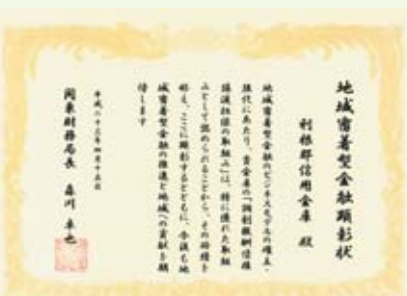 地域密着型金融顕彰状
利根郡信用金庫 殿
地域密着型金融のビジネスモデルの確立・
強化にあたり、貴金庫の「調剤報酬債権
譲渡担保の取組み」は、特に優れた取組
みとして認められることから、その功績を
称え、ここに顕彰するとともに、今後も地
域密着型金融の推進と地域への貢献を期
待します
平成二十三年四月十五日
関東財務局長 森川 卓也